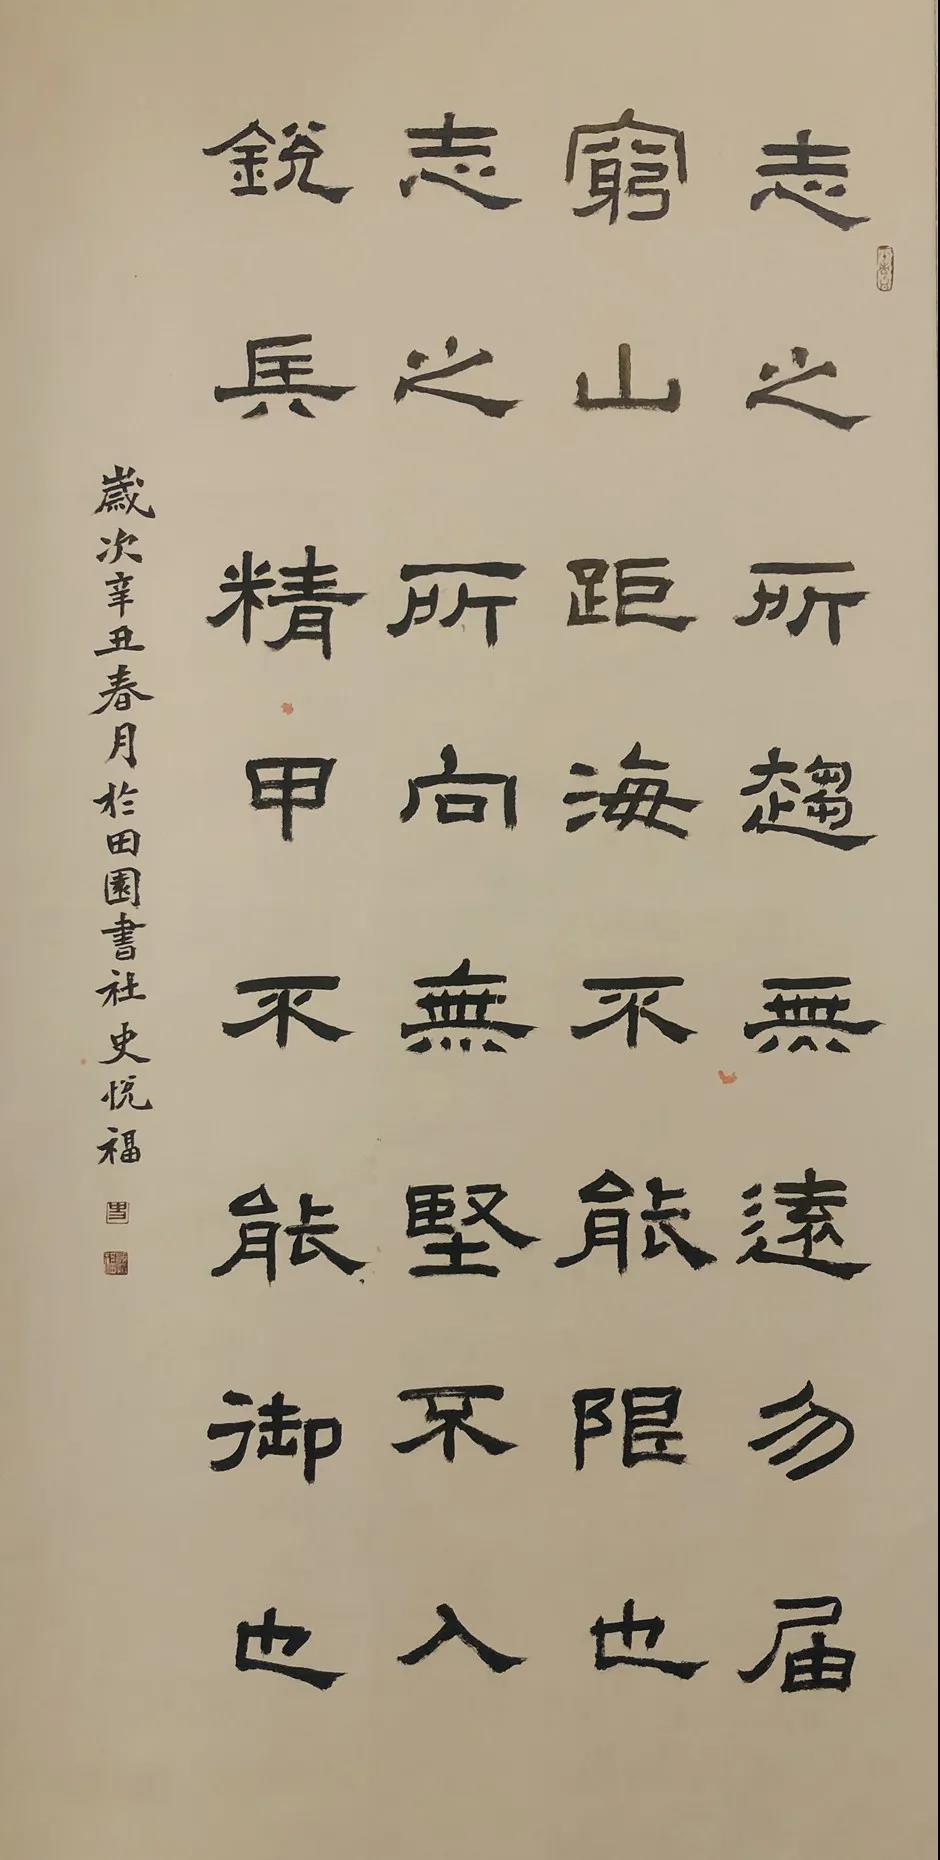 志之所趨無遠勿届
窮山距海不能限也
志之所向無堅不入
銳兵精甲不能御也
歲次辛丑春月於田園書社史悅福